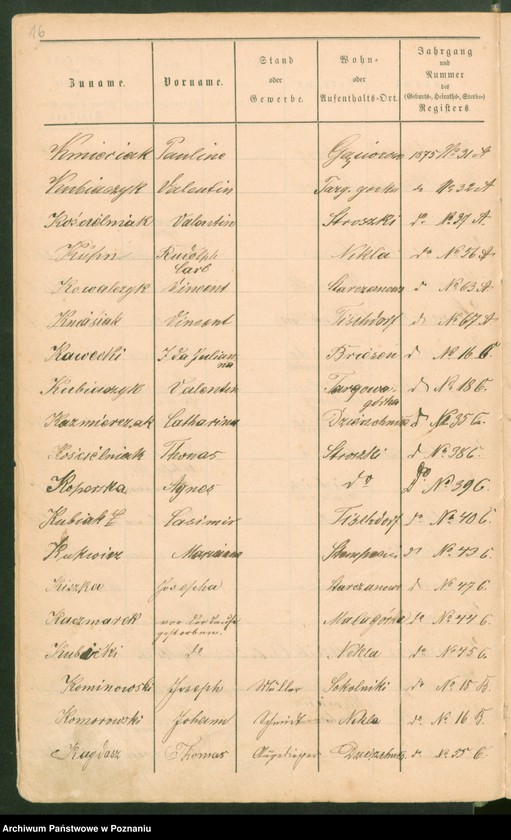 16
Zuname.
Vorname.
Stand
oder
Gewerbe.
Wohn-
oder
Aufenthalts-Ort.
Jahrgang
und
Nummer
des
(Geburts-, Heiraths-, Sterbe-)
Registers.
Kmieciak Pauline 1875 No 31 A
Valentin Targ. gorka do No 32 A
Kościelniak Valentin Stroszki do No 37 A.
Kühn Rudolph Carl Nekla do No 56 A
Kowalczyk Vincent do No 63 A
Vincent do No 67 A
Kawecki Ida Julianna do No 16 C.
Kubiaszyk Valentin Targowagorka do No 18 C.
Kazmierczak Catharina do No 35 C.
Kościelniak Thomas Stroszki do No 38 C.
Koperska Agnes do do No 39 C.
Kubiak Casimir do No 40 C.
Marianna do No 43 C.
Kiszka Josepha Starczanowo do No 47 C.
Kaczmarek vor der Taufe gestorben. do No 44 C.
Kubicki do Nekla do No 45 C
Kominowski Joseph Müller Sokolniki do No 15 B.
Komorowski Johann Schmidt Nekla do No 16 B.
Thomas do No 55 C.
Archiwum Państwowe w Poznaniu
szukajwarchiwach.pl